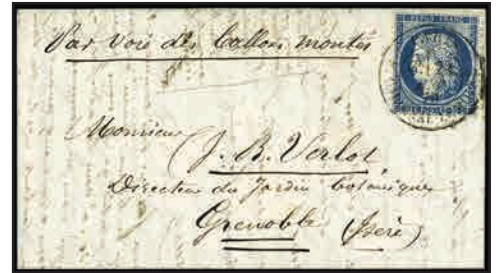 Par voie des ballon montés
REPUB. FRANC.
Monsieur
J. B. Verlot
Directeur du Jardin botanique
Grenoble (Isère).